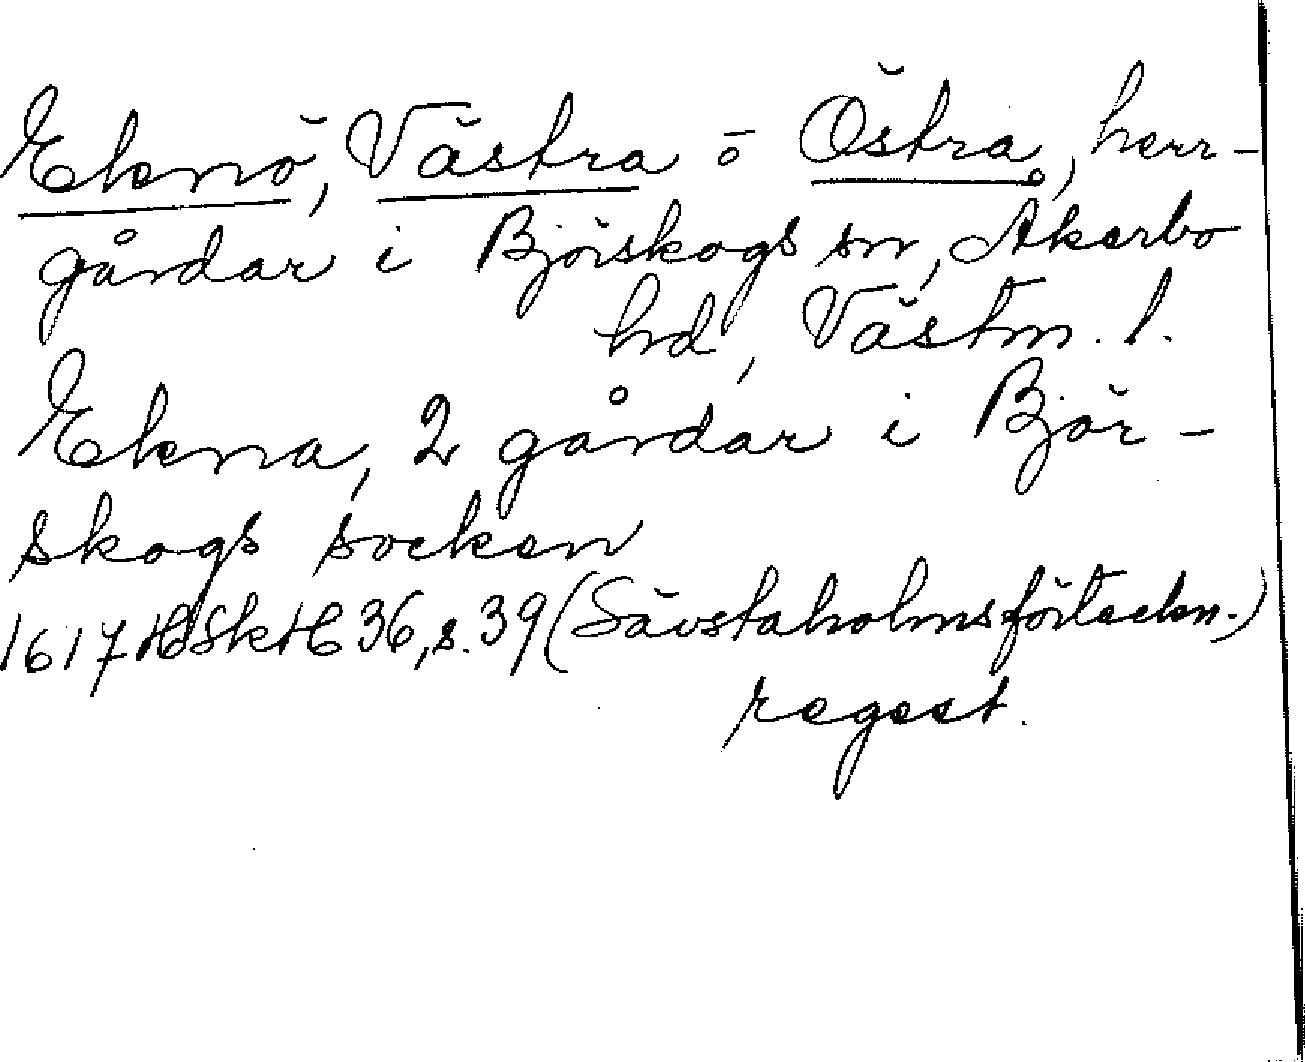 Ekenö, Västra o Östra, herr-
gårdar i Björskogs sn, Åkerbo
hd, Västm. l.
Ekena, 2 gårdar i Björ-
skogs socken
1617 HSkH 36, s. 39 (Sävstaholmsförteckn.)
regest.